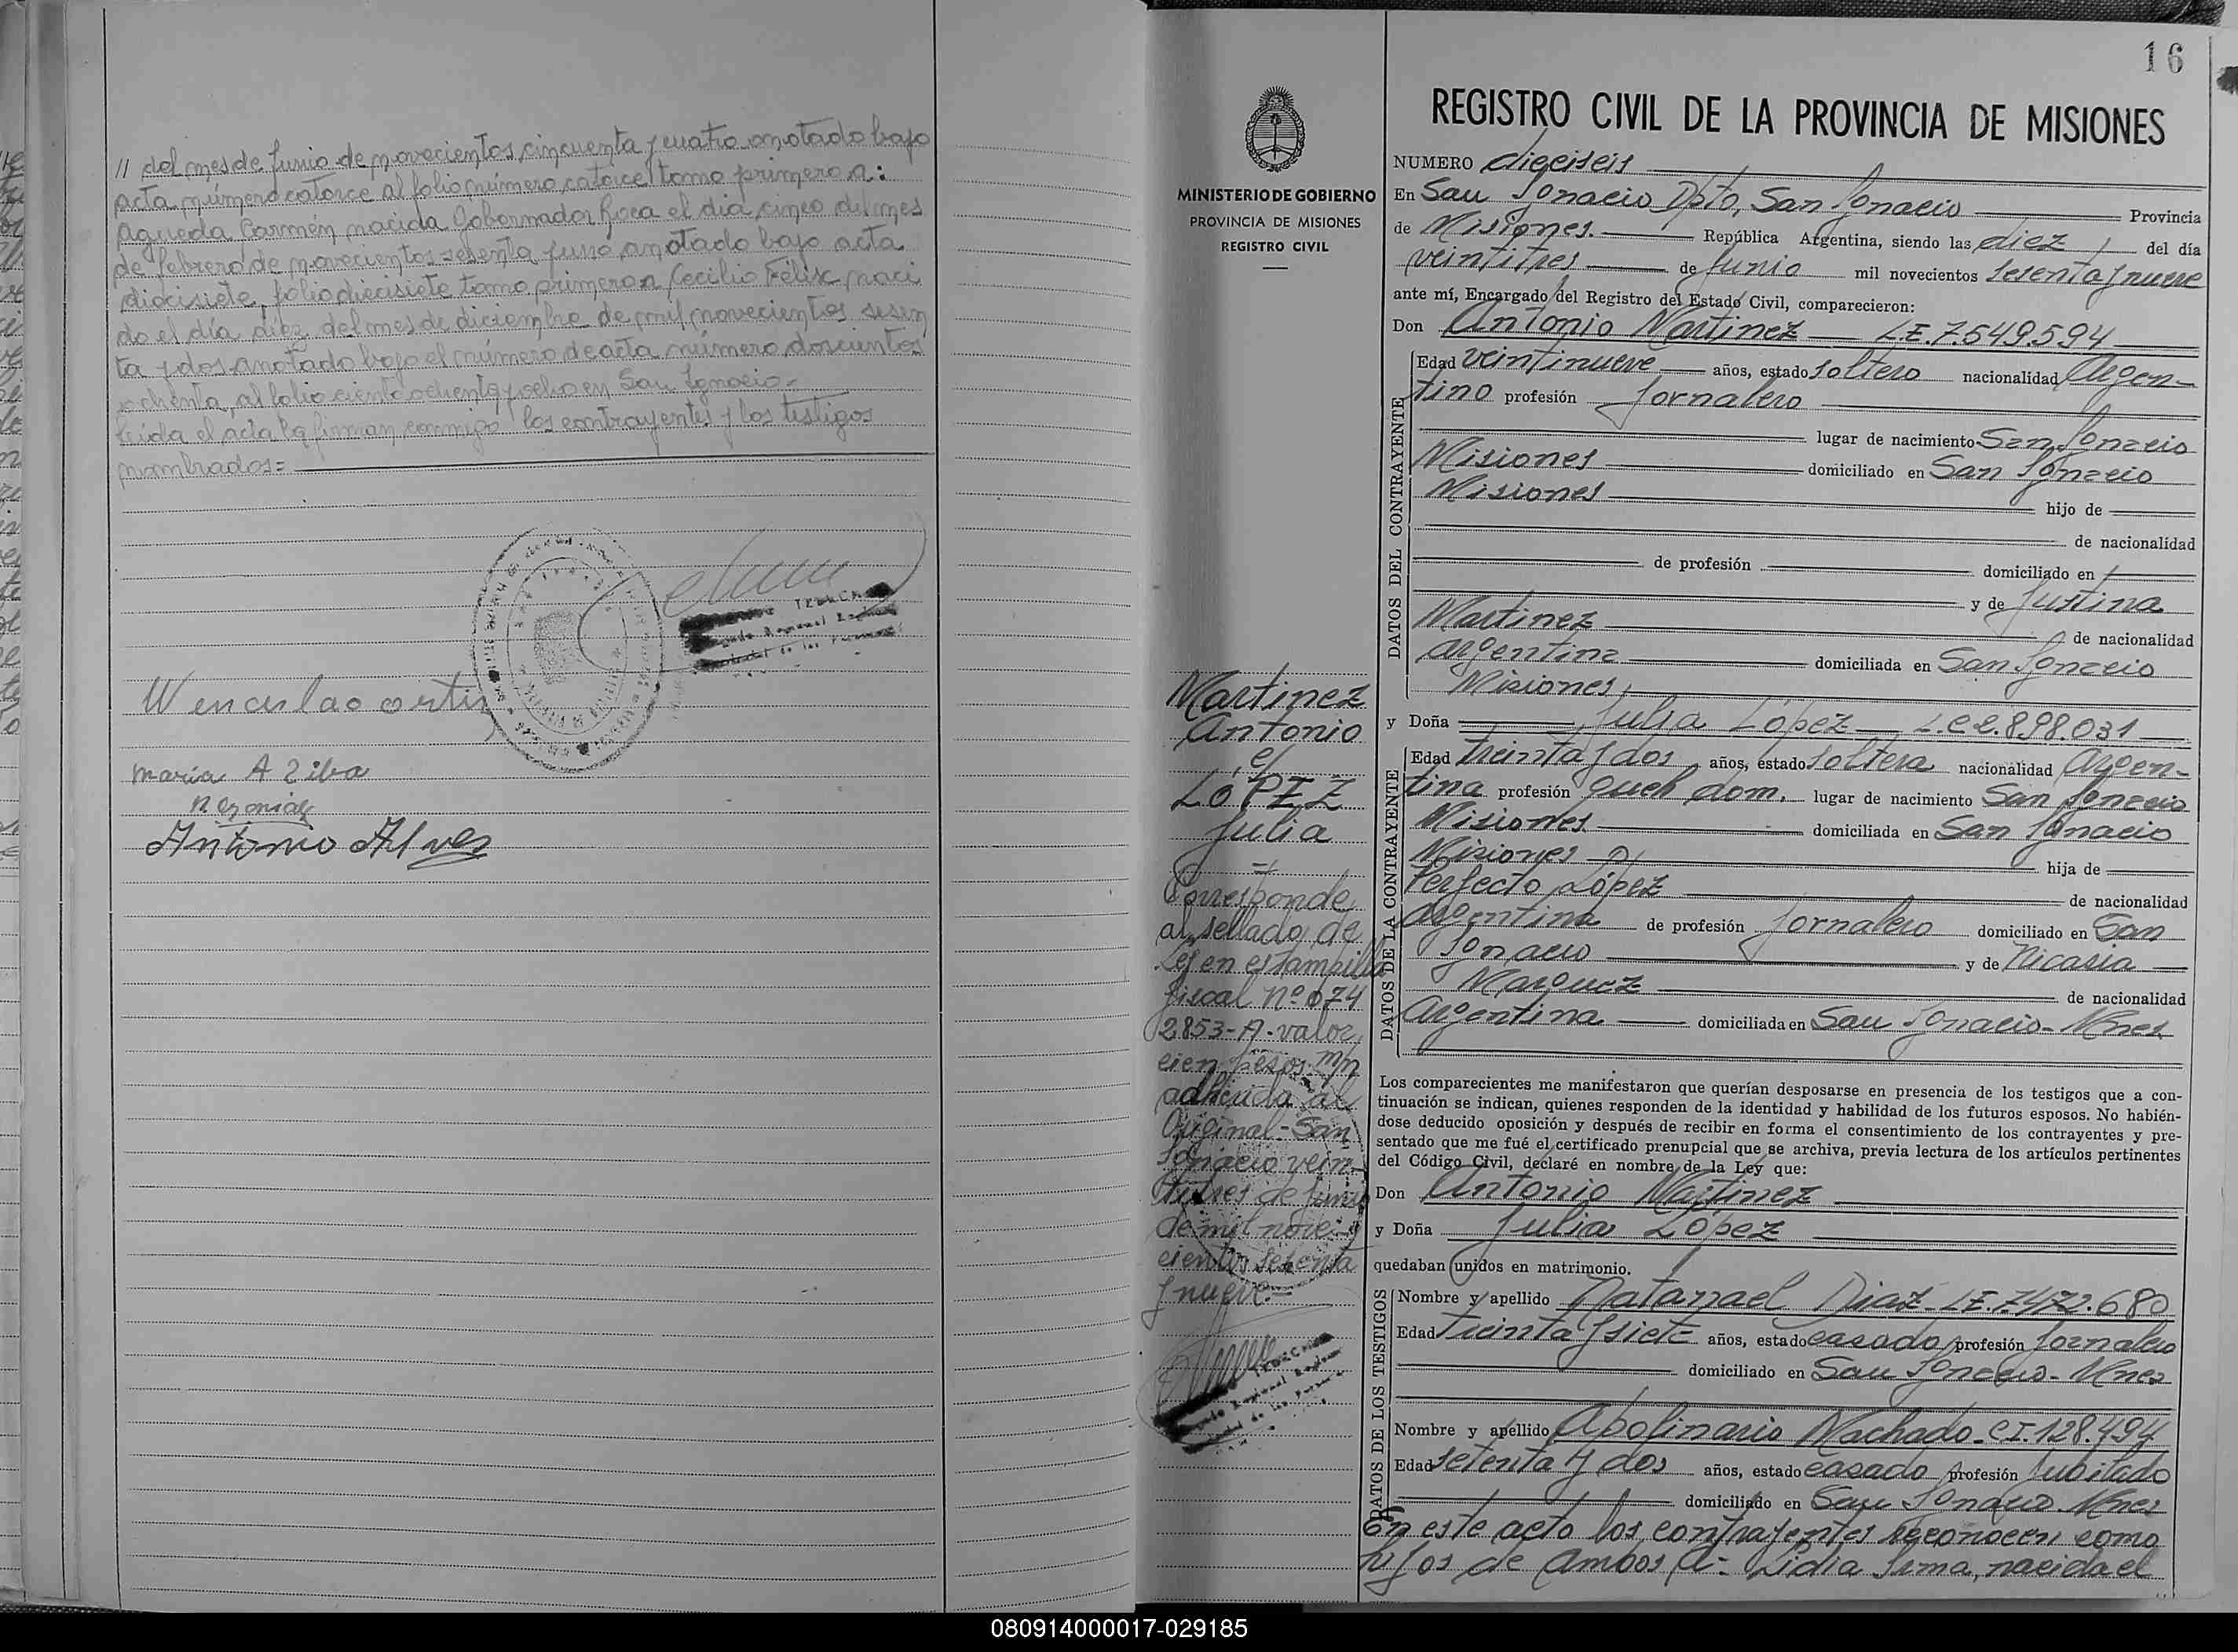 // del mes de Junio de novecientos cincuenta y cuatro anotado bajo
acta número catorce al folio número catorce tomo primero a:
Agueda Carmén nacida Gobernador Roca el día cinco del mes
de febrero de novecientos sesenta y uno anotado bajo acta
diecisiete, folio diecisiete tomo primero a Cecilio Félix naci
do el día diez del mes de diciembre de mil novecientos sesen
ta y dos anotado bajo el número de acta número doscientos
ochenta, al folio ciento ochenta y ocho en San Ignacio-
Leída el acta la firman conmigo los contrayentes y los testigos
nombrados=
Wenceslao ortis
maria A Silva
Antonio Alves
16
REGISTRO CIVIL DE LA PROVINCIA DE MISIONES
MINISTERIO DE GOBIERNO
PROVINCIA DE MISIONES
REGISTRO CIVIL
Martinez
Antonio
c/
LÓPEZ
Julia
Corresponde
al sellado de
Ley en estampilla
fiscal Nº 074
2853-A-valor
cien pesos m/n
adherida al
Original-San
Ignacio vein-
titres de Junio
de mil nove-
cientos sesenta
y nueve=
NUMERO diesiseis
En San Ignacio Dpto, San Ignacio Provincia
de Misiones. República Argentina, siendo las diez, del día
veintitres de Junio mil novecientos sesenta y nueve
ante mí, Encargado del Registro del Estado Civil, comparecieron:
Don Antonio Martinez L.E. 7.549.594
DATOS DEL CONTRAYENTE
Edad veintinueve años, estado soltero nacionalidad Argen-
tino profesión Jornalero
lugar de nacimiento San Ignacio
Misiones domiciliado en San Ignacio
Misiones hijo de
de nacionalidad
de profesión domiciliado en
y de Justina
Martinez de nacionalidad
argentina domiciliada en San Ignacio
Misiones,
y Doña Julia López L.C 2.898.031
DATOS DE LA CONTRAYENTE
Edad treinta y dos años, estado soltera nacionalidad Argen-
tina profesión queh dom. lugar de nacimiento San Ignacio
Misiones. domiciliada en San Ignacio
Misiones hija de
Perfecto López de nacionalidad
argentina de profesión Jornalero domiciliado en San
Ignacio y de Nicasia
Marquez de nacionalidad
Argentina domiciliada en San Ignacio- Mnes.
Los comparecientes me manifestaron que querían desposarse en presencia de los testigos que a con-
tinuación se indican, quienes responden de la identidad y habilidad de los futuros esposos. No habién-
dose deducido oposición y después de recibir en forma el consentimiento de los contrayentes y pre-
sentado que me fué el certificado prenupcial que se archiva, previa lectura de los artículos pertinentes
del Código Civil, declaré en nombre de la Ley que:
Don Antonio Martinez
y Doña Julia López
quedaban unidos en matrimonio.
DATOS DE LOS TESTIGOS
Nombre y apellido Natanael Diaz- L.E. 7.472.680
Edad treinta y siete años, estado casado profesión Jornalero
domiciliado en San Ignacio- Mnes
Nombre y apellido Apolinario Machado- C.I. 128.494
Edad setenta y dos años, estado casado profesión Jubilado
domiciliado en San Ignacio. Mnes
En este acto los contrayentes reconocen como
hijos de ambos a:- Lidia Irma, nacida el
080914000017-029185